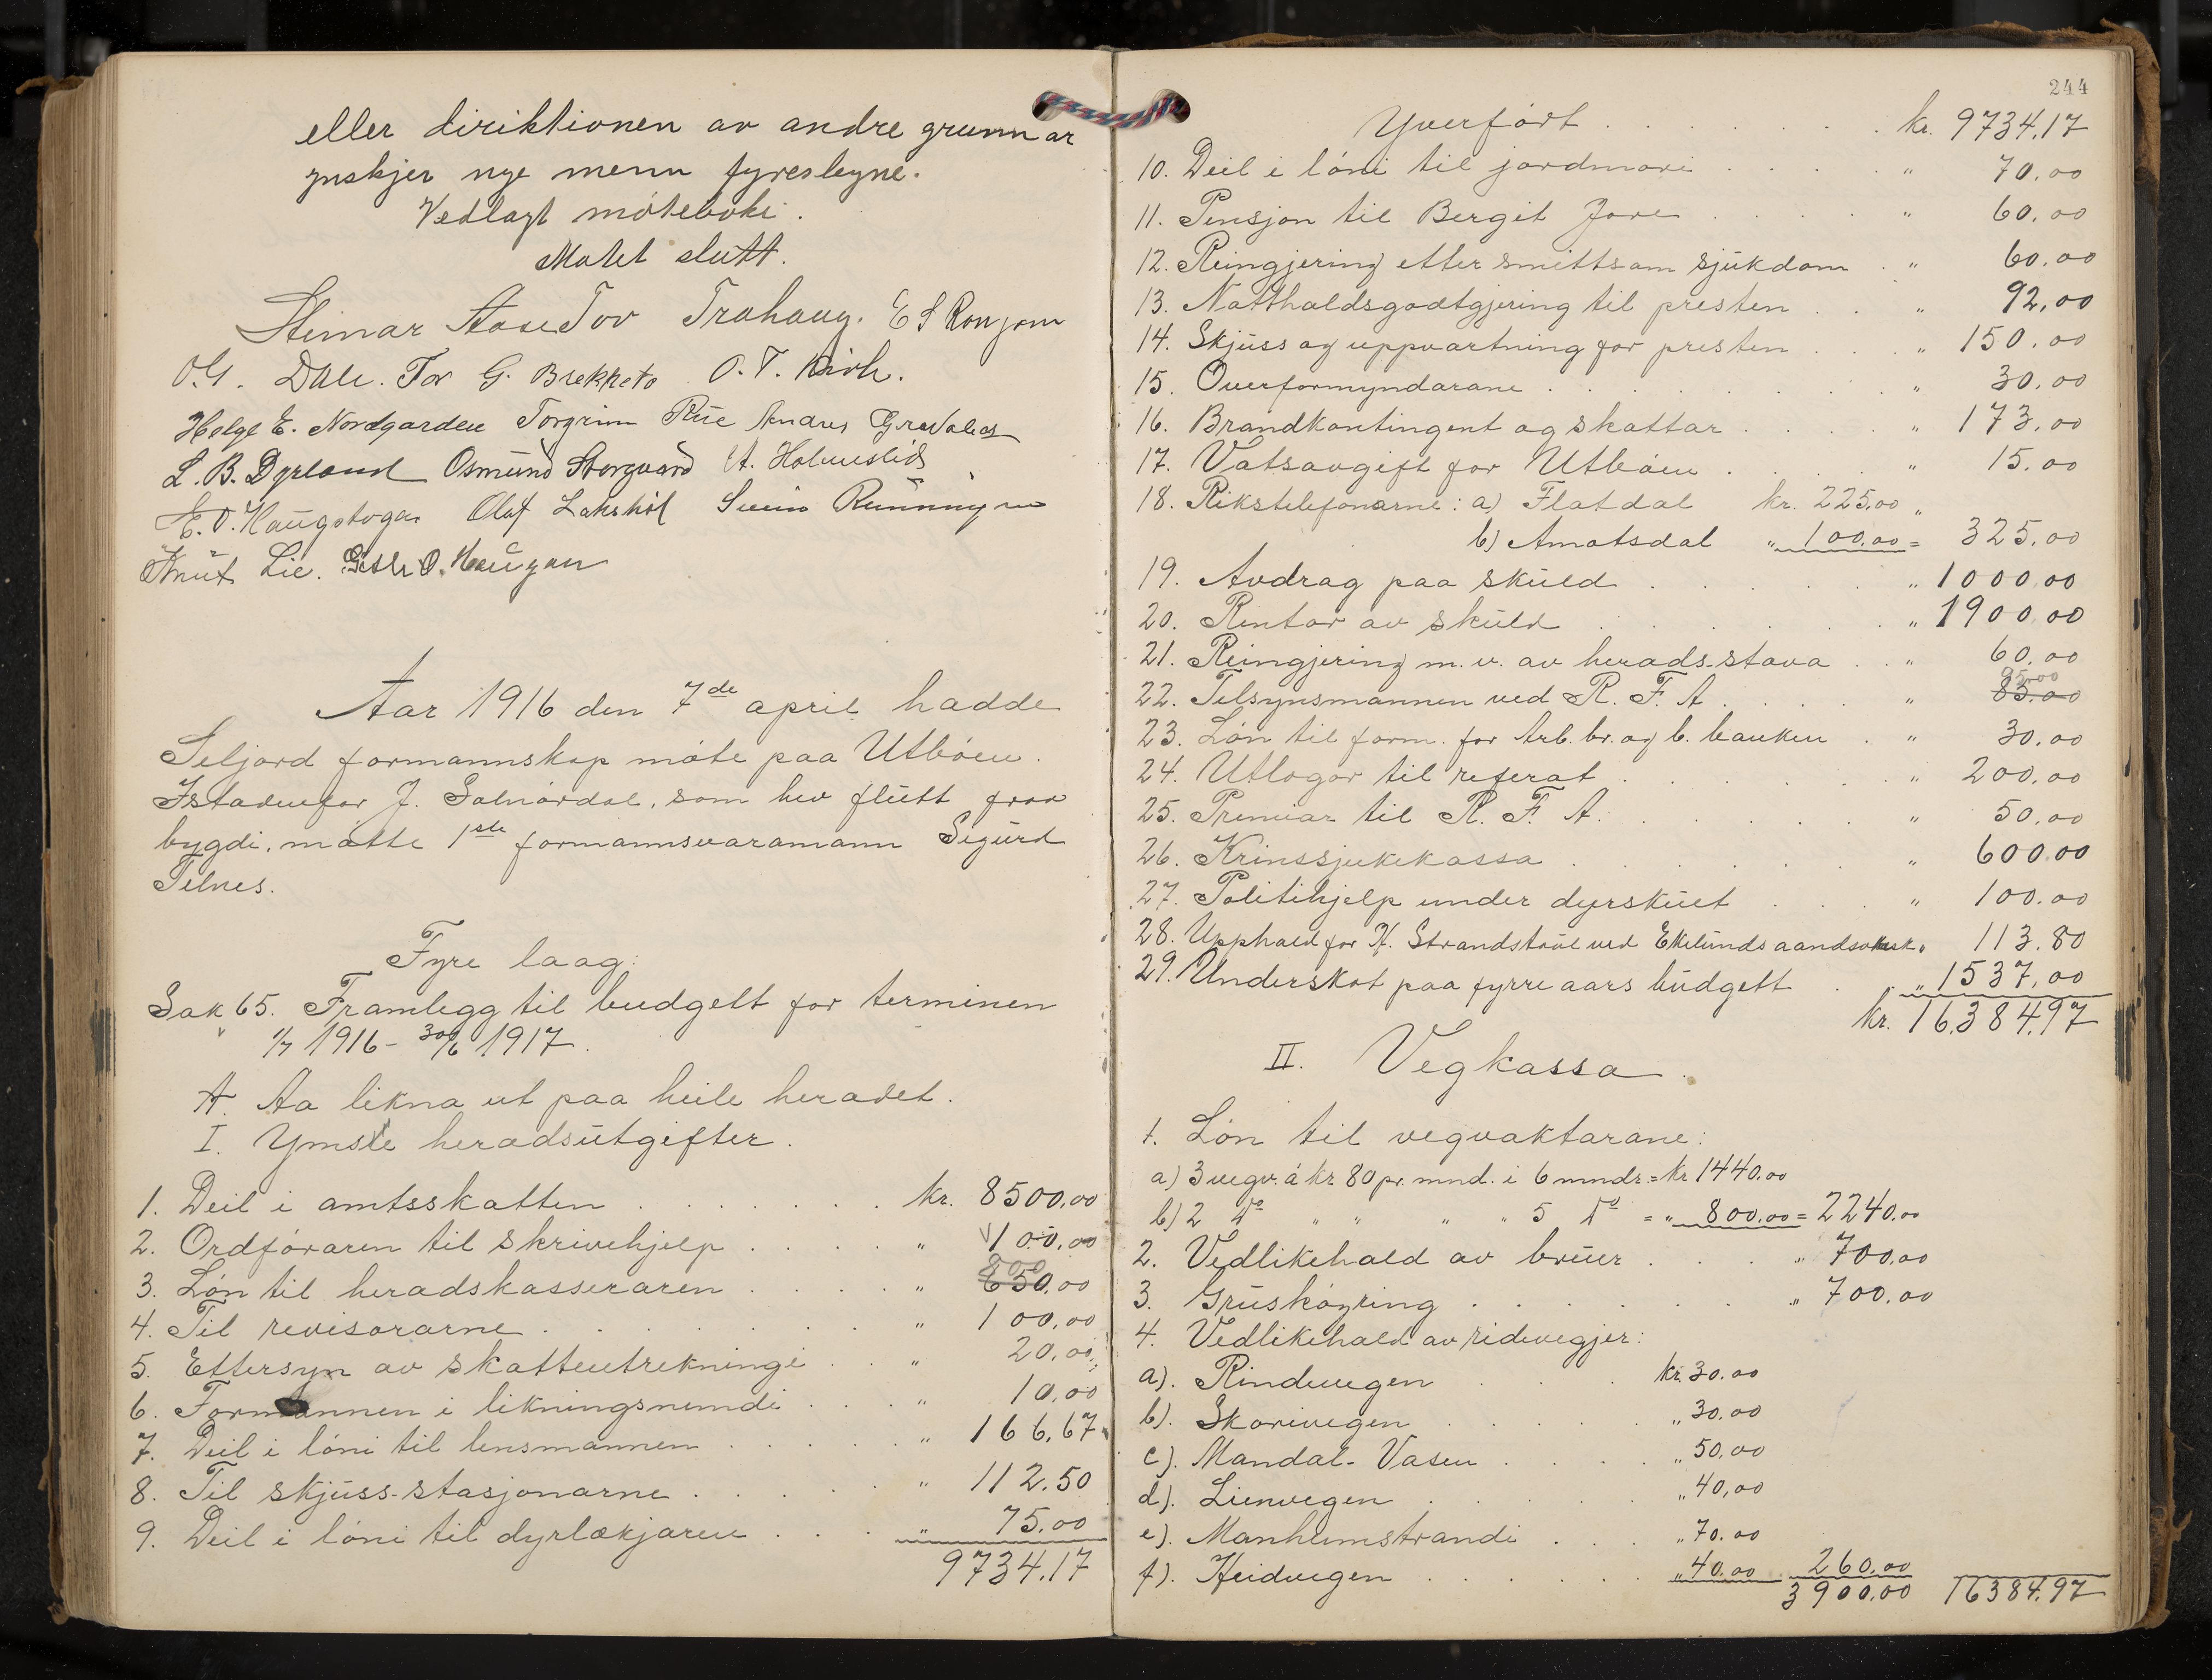 eller diriktionen av andre grunnar
ynskjer nye menn fyreslegne.
Vedlagt møteboki.
Møtet slutt.
Steinar Aase Tov Trahaug. E S Ronjom
O.G. Dale. Tor G. Brekketo O. T.
Helge E. Nordgarden Torgrim Rue Anders Gravalid
L. B. Dyrland Osmund Storgaard A. Holmeslid
E. O. Haugstoga Olaf Lakshol Svein Runningen
Knut Lie. Gisle O. Haugan
Aar 1916 den 7de april hadde
Seljord formannskap møte paa Utbøen.
Istadenfor J. Sølnørdal, som hev flutt fraa
bygdi, møtte 1ste formannsvaramann Sigurd
Telnes.
Fyre laag:
Sak 65. Framlegg til budgett for terminen
1/7 1916 - 30/6 1917.
A. Aa likna ut paa heile heradet.
I. Ymse heradsutgifter.
1. Deil i amtsskatten . . . kr. 8500.00
2. Ordføraren til skrivehjelp . . . " 100.00
3. Løn til heradskasseraren . . . " 800 650.00
4. Til revisorarne . . . " 100.00
5. Ettersyn av skatteutrekningi . . . " 20.00
6. Formannen i likningsnemdi . . . " 10.00
7. Deil i løni til lensmannen . . . " 166.67
8. Til skjuss-stasjonarne . . . " 112.50
9. Deil i løni til dyrlækjaren . . . " 75.00
9734.17
244
Yverført . . . kr. 9734.17
10. Deil i løni til jordmori . . . " 70.00
11. Pensjon til Bergit Jore . . . " 60.00
12. Reingjering etter smittsam sjukdom . " 60.00
13. Natthaldsgodtgjering til presten . . " 92.00
14. Skjuss og uppvartning for presten . . . " 150.00
15. Overformyndarane . . . " 30.00
16. Brandkontingent og skattar . . . " 173.00
17. Vatsavgift for Utbøen . . . " 15.00
18. Rikstelefonarne: a) Flatdal kr. 225.00 "
b) Amotsdal " 100.00 = 325.00
19. Avdrag paa skuld . . . " 1000.00
20. Rentor av skuld . . . " 1900.00
21. Reingjering m. v. av herads-stova . . " 60.00
22. Tilsynsmannen ved R. F. A . . . " 95.00 85.00
23. Løn til form. for Arb. br. og b. banken . " 30.00
24. Utlogor til referat . . . " 200.00
25. Premiar til R. F. A. . . . " 50.00
26. Krinssjukekassa . . . " 600.00
27. Politihjelp under dyrskuet . . . " 100.00
28. Upphald for H. Strandstøil ved Ekelunds aandsvksk. " 113.80
29. Underskot paa fyrre aars budgett . . " 1537.00
kr. 16384.97
II. Vegkassa.
1. Løn til vegvaktarane:
a) 3 vegv. á kr 80 pr. mnd. i 6 mndr. = kr 1440.00
b) 2 do " " " " 5 do = " 800.00 = 2240.00
2. Vedlikehald av bruer . . . " 700.00
3. Gruskøyring . . . " 700.00
4. Vedlikehald av ridevegjer:
a). Rindevegen . . . kr. 30.00
b). Skorivegen . . . " 30.00
c). Mandal-Vasen . . . " 50.00
d). Lienvegen . . . " 40.00
e). Manheimstrandi . . . " 70.00
f). Heidvegen . . . " 40.00 260.00
3900.00 16384.97